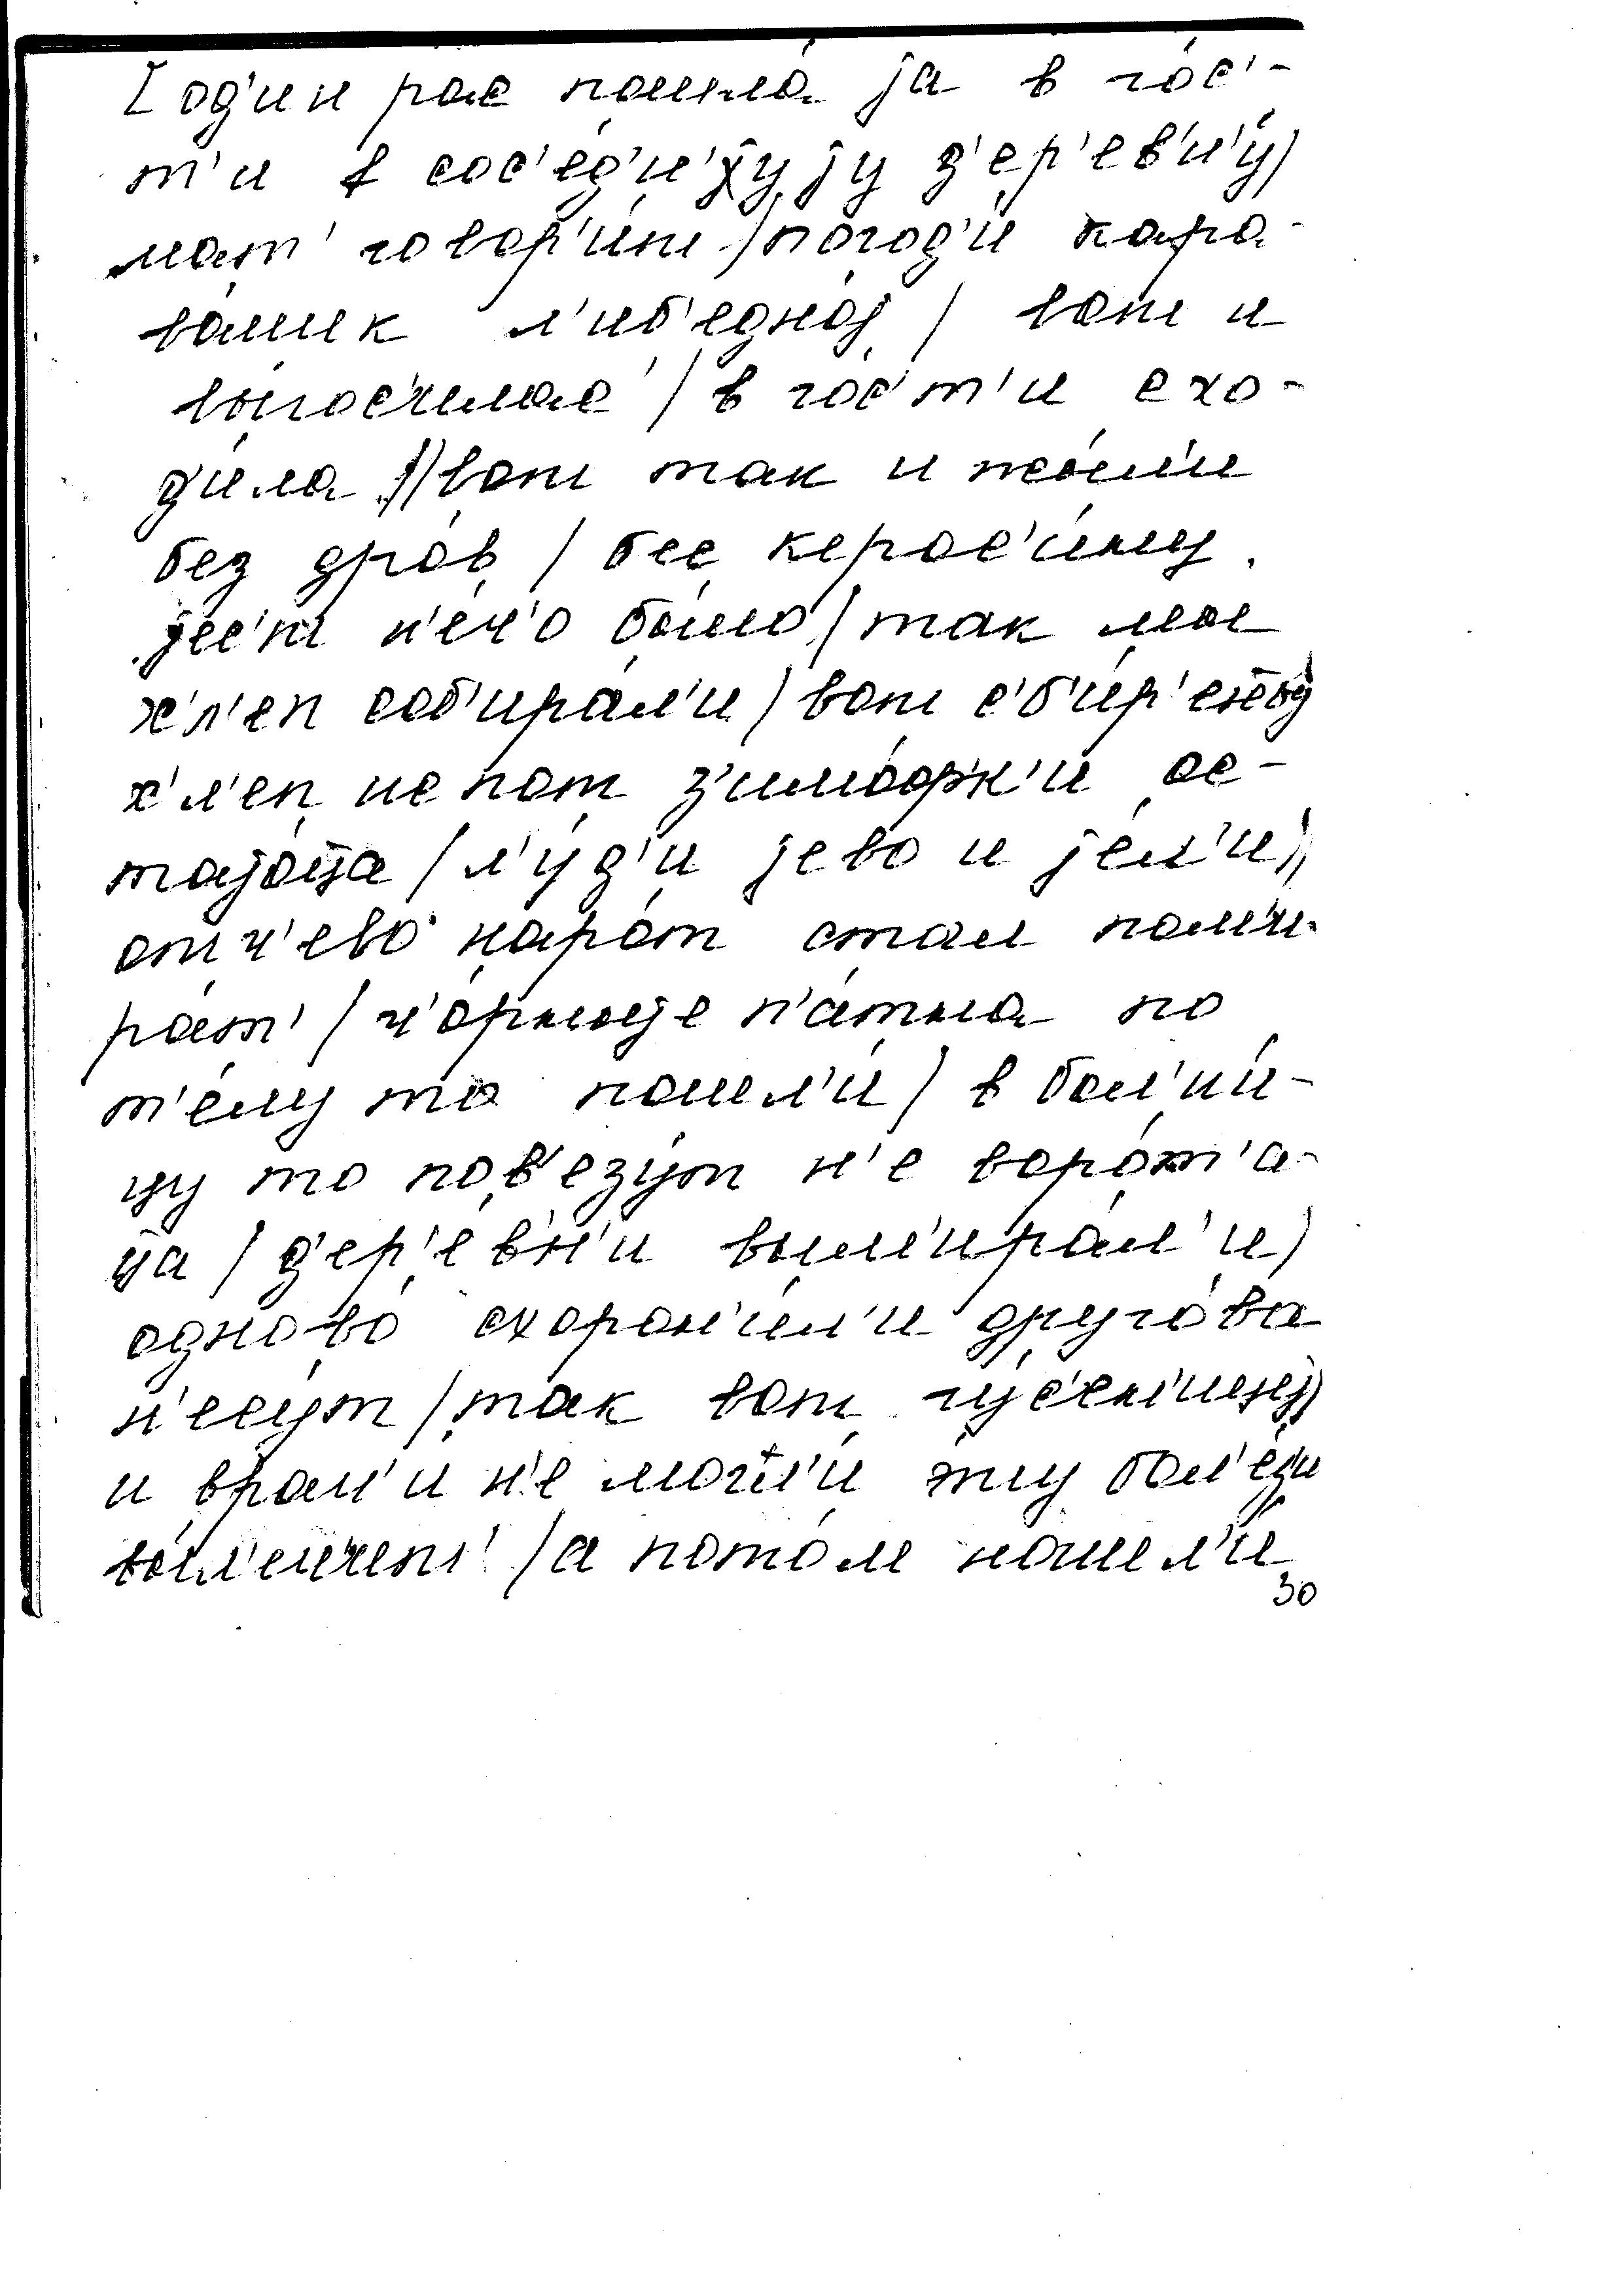 [од'ин рас пошла́ jа в го́с'-
т'и в сос'е́д'н'уjу д'ер'е́в'н'у/
мат' говор'и́т /погод'и́ кара-
ва́шик л'иб'едно́j / вот и
вы́госчилас' / в го́с'т'и схо-
д'и́ла // вот так и жы́л'и
без дров / бес керос'и́ну.
jес'т' н'е́ч'о бы́ло / так мы
х'л'еп соб'ира́л'и / вот с'б'ир'еш
х'л'еп не пот з'имо́фк'и ос-
таjо́ца / л'у́д'и jево и jе́л'и //
отч'ево́ наро́т стал пом'и-
ра́т' / ч'о́рныjе п'а́тна по
т'е́лу то пошл'и́ / в бол'ни́-
цу то пов'езу́т н'е воро́т'а-
ца / д'ер'е́вн'и вым'ира́л'и /
одново́ схорон'и́л'и друго́ва
н'есу́т / так вот гу́с'ен'ицеj /
и врач'и́ н'е могл'и́ эту бол'е́зн'
вы́л'ечит' / а пото́м нашл'и́
30